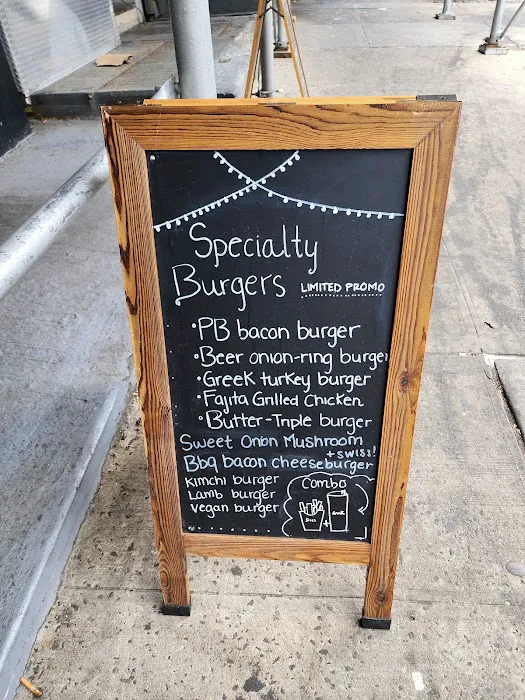 Specialty
Burgers LIMITED PROMO
•PB bacon burger
•Beer onion-ring burger
•Greek turkey burger
•Fajita Grilled Chicken
•Butter-Triple burger
Sweet Onion Mushroom
+ SWISS!
Bbq bacon cheeseburger
Kimchi burger
Lamb burger
Vegan burger
Combo
fries
+
drink